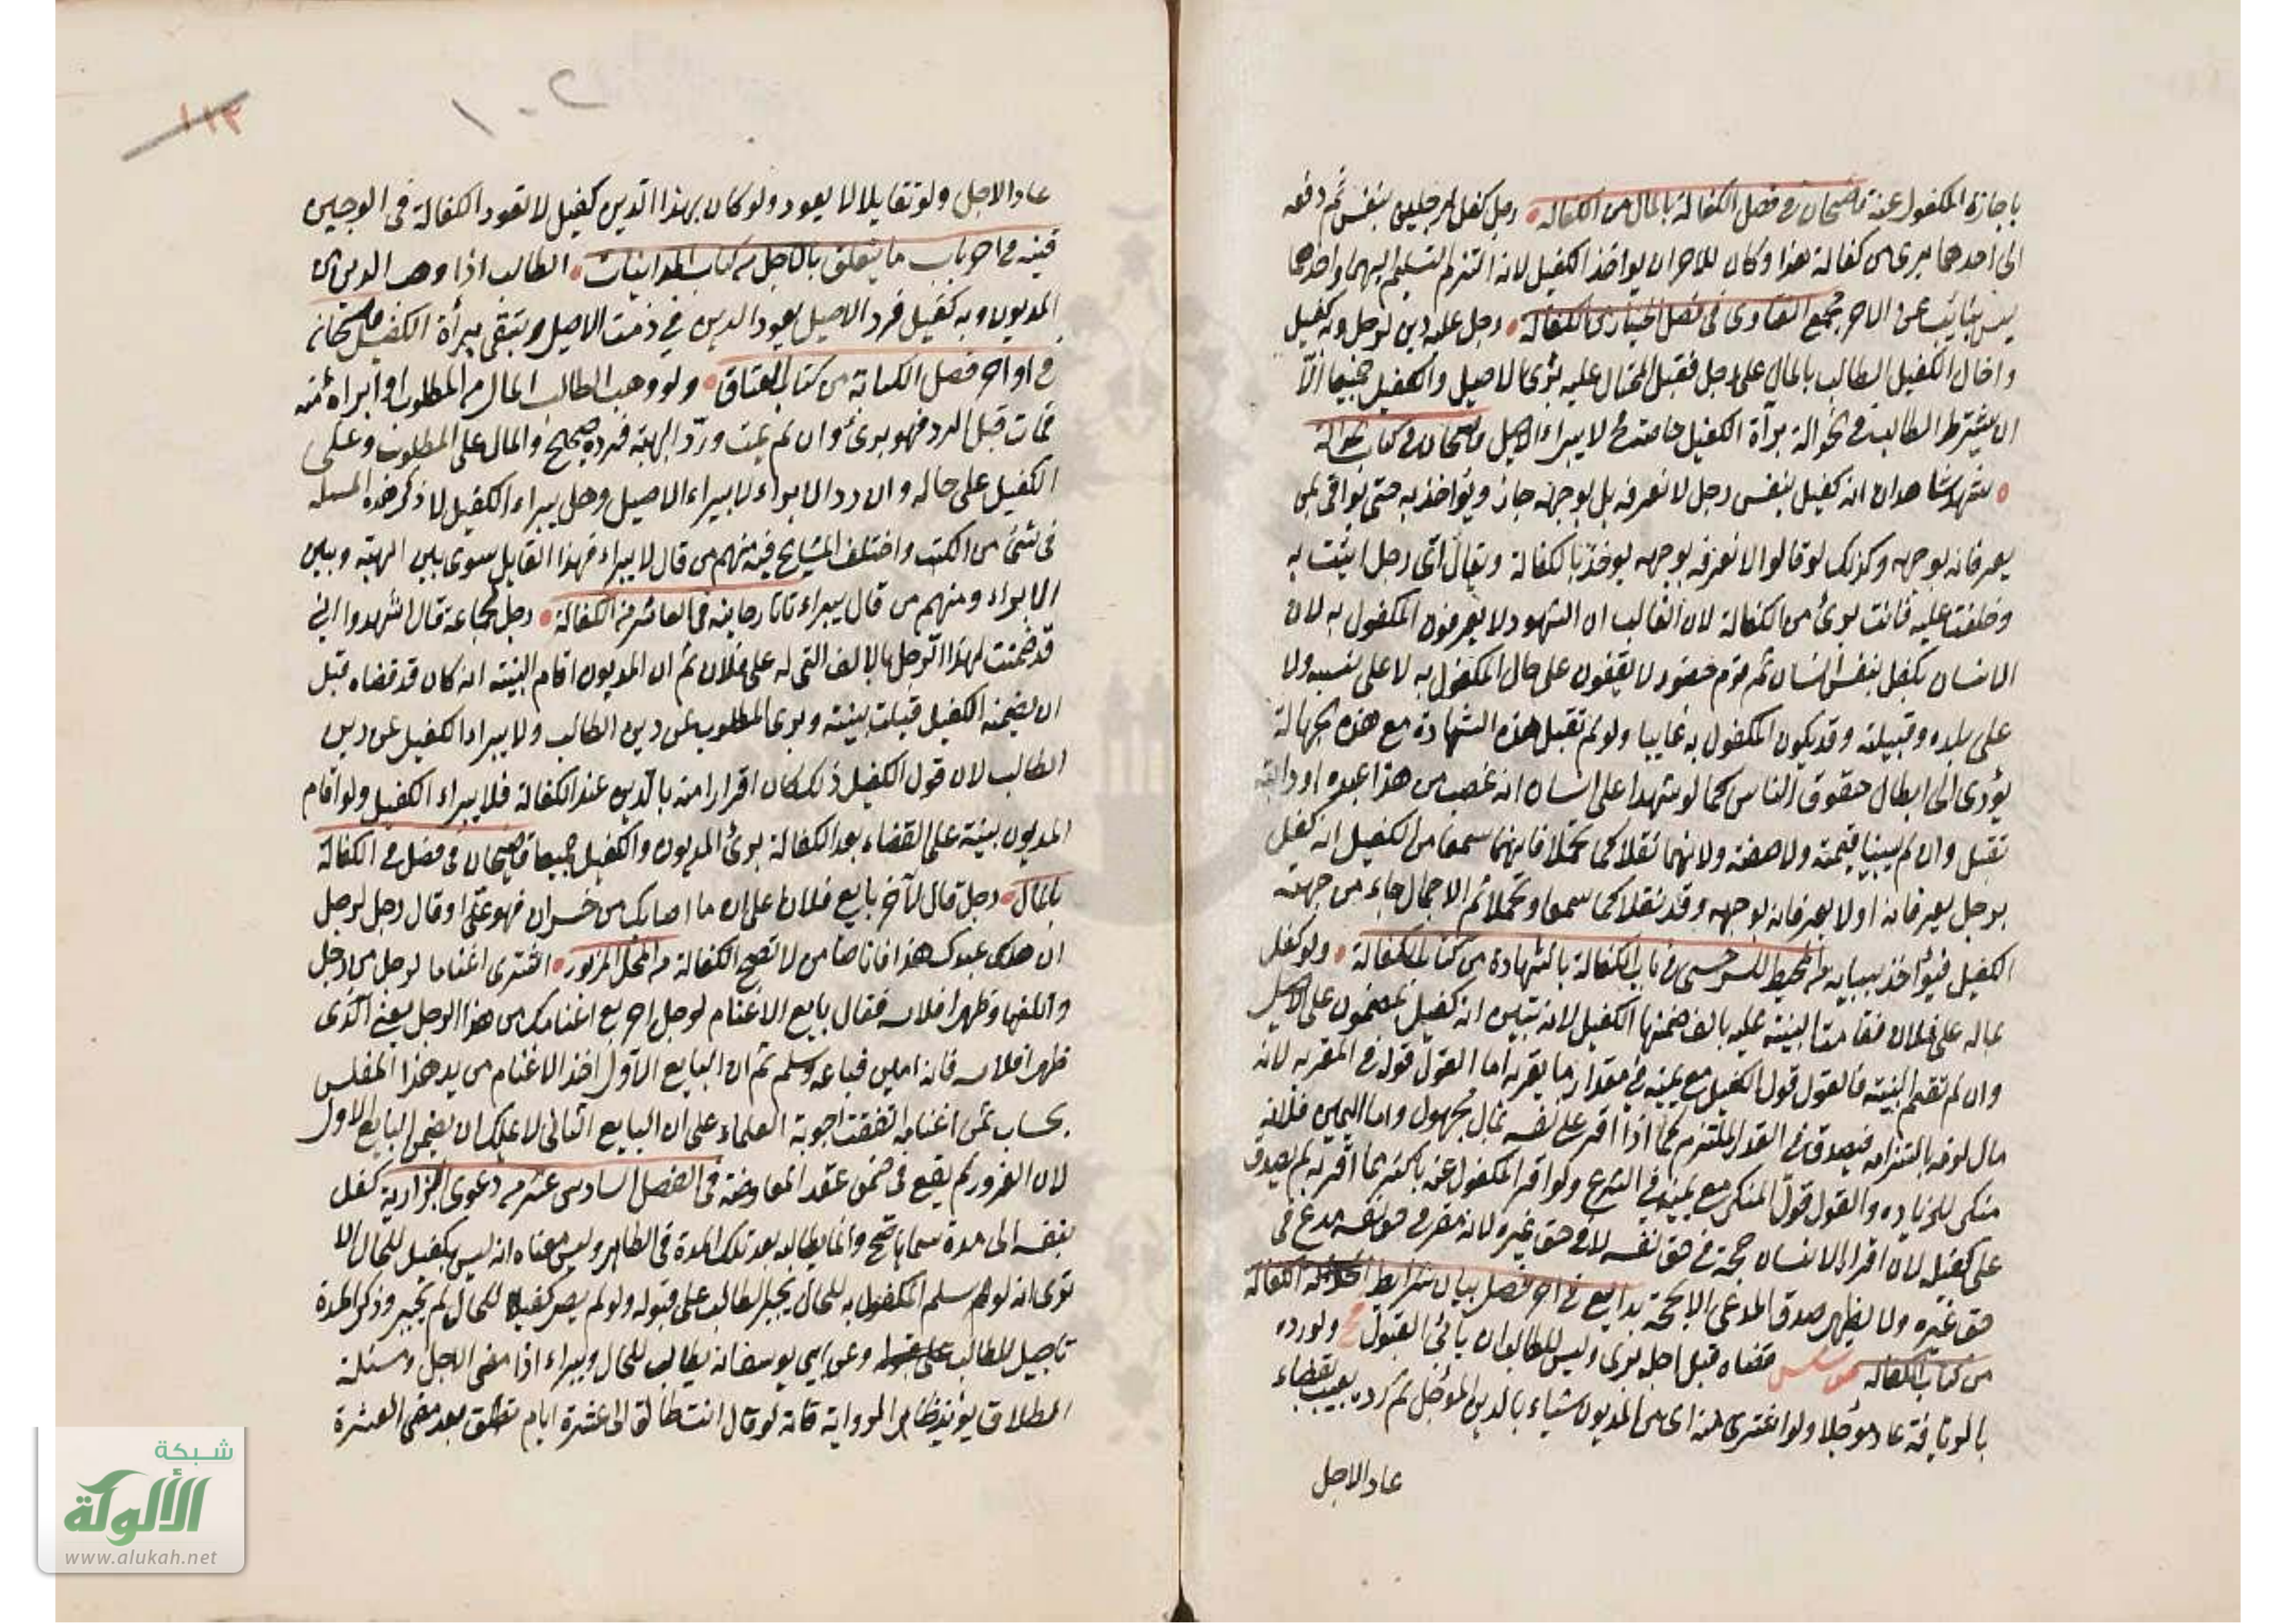 باجازة المكفول عنه قاضيخان في فصل الكفالة بالمال من الكفالة رجل كفل لرجلين بنفس ثم دفعه
الى احدهما برئ من كفالة هذا وكان للاخر ان يواخذ الكفيل لانه التزم التسليم اليهما واحدهما
ليس بنائب عن الاخر مجمع الفتاوى في فصل الخيار في الكفالة رجل عليه دين لرجل وبه كفيل
واحال الكفيل الطالب بالمال على رجل فقبل المحتال عليه برئ الاصيل والكفيل جميعا الا
ان يشترط الطالب في الحوالة براة الكفيل خاصة فح لا يبراء الاصيل قاضيخان في كتاب الحوالة
شهد شاهدان انه كفيل بنفس رجل لا نعرفه بل بوجهه جاز ويؤاخذ به حتى يوافي بمن
يعرفانه بوجهه وكذلك لو قالوا لا نعرفه بوجهه يوخذ بالكفالة ويقال اى رجل اتيت به
وحلفت عليه فانت برئ من الكفالة لان الغالب ان الشهود لا يعرفون المكفول به لان
الانسان يكفل بنفس انسان ثم قوم حضور لا يقفون على حال المكفول به لا على نسبه ولا
على بلده وقبيلته وقد يكون المكفول به غايبا ولو لم تقبل هذه الشهادة مع هذه الجهالة
يؤدى الى ابطال حقوق الناس كما لو شهدا على انسان انه غصب من هذا عبده او دابته
تقبل وان لم يبينا قيمته ولا صفته ولانهما نقلا كما تحملا فانهما سمعا من الكفيل انه كفيل
برجل يعرفانه او لا يعرفانه بوجهه وقد نقلا كما سمعا وتحملا ثم الاجمال جاء من جهة
الكفيل فيؤاخذ ببيانه من محيط السرخسى في باب الكفالة بالشهادة من كتاب الكفالة ولو كفل
بماله على فلان فقامت البينة عليه بالف ضمنها الكفيل لانه تبين انه كفيل بمضمون على الاصيل
وان لم تقم البينة فالقول قول الكفيل مع يمينه في مقدار ما يقر به اما القول قوله في المقر به لانه
مال لزمه بالتزامه فيصدق في القدر الملتزم كما اذا اقر على نفسه بمال مجهول واما اليمين فلانه
منكر للزيادة والقول قول المنكر مع يمينه في الشرع ولو اقر المكفول عنه باكثر مما اقر به لم يصدق
على كفيله لان اقرار الانسان حجة في حق نفسه لا في حق غيره لانه مقر في حق نفسه مدع في
حق غيره ولا يظهر صدق المدعى الا بحجة بدايع في اخر فصل بيان شرايط الكفالة
من كتاب الكفالة قضاه قبل اجله برئ وليس للطالب ان يأبى القبول ولو رده
بالزيافة عاد مؤجلا ولو اشترى منه اى من المديون شياء بالدين المؤجل ثم رده بعيب بقضاء
عاد الاجل
عاد الاجل ولو تقايلا لا يعود ولو كان بهذا الدين كفيل لا تعود الكفالة في الوجهين
قنيه في اخر باب ما يتعلق بالاجل من كتاب المداينات الطالب اذا وهب الدين من
المديون وبه كفيل فرد الاصيل يعود الدين في ذمت الاصيل وتبقى برأة الكفيل قاضيخان
في اواخر فصل الكتابة من كتاب العتاق ولو وهب الطالب المال من المطلوب او أبراه منه
فمات قبل الرد فهو برئ وان لم يمت ورد الهبة فرده صحيح والمال على المطلوب وعلى
الكفيل على حاله وان رد الابراء لا يبراء الاصيل وهل يبراء الكفيل لا ذكر لهذه المسئلة
في شئ من الكتب واختلف المشايخ فيه منهم من قال لا يبراء فهذا القايل سوى بين الهبة وبين
الابراء ومنهم من قال يبراء تاتارخانيه في العاشر من الكفالة رجل لجماعة قال اشهدوا انى
قد ضمنت لهذا الرجل بالالف التى له على فلان ثم ان المديون اقام البينة انه كان قد قضاه قبل
ان يضمنه الكفيل قبلت بينته وبرئ المطلوب عن دين الطالب ولا يبراء الكفيل عن دين
الطالب لان قول الكفيل ذلك كان اقرارا منه بالدين عند الكفالة فلا يبراء الكفيل ولو اقام
المديون بينة على القضاء بعد الكفالة برئ المديون والكفيل جميعا قاضيخان في فصل في الكفالة
بالمال رجل قال لآخر بايع فلانا على ان ما اصابك من خسران فهو على او قال رجل لرجل
ان هلك عبدك هذا فانا ضامن لا تصح الكفالة من المحل المزبور اشترى اغناما لرجل من رجل
واتلفها وظهر افلاسه فقال بايع الاغنام لرجل اخر بع اغنامك من هذا الرجل يعنى الذى
ظهر افلاسه فانه امين فباعه وسلم ثم ان البايع الاول اخذ الاغنام من يد هذا المفلس
بحساب ثمن اغنامه اتفقت اجوبة العلماء على ان البايع الثانى لا يملك ان يضمن البايع الاول
لان الغرور لم يقع في ضمن عقد المعاوضة في الفصل السادس عشر من دعوى البزازية كفل
بنفسه الى مدة سماها صح وانما يطالبه بعد تلك المدة في الظاهر وليس معناه انه ليس بكفيل للحال الا
ترى انه لو سلم المكفول به للحال يجبر الطالب على قبوله ولو لم يصر كفيلا للحال لم يجبر وذكر المدة
تاجيل للطالب وعن ابى يوسف انه يطالب للحال ويبراء اذا مضى الاجل ومسئلة
الطلاق يؤيد ظاهر الرواية فانه لو قال انت طالق الى عشرة ايام تطلق بعد مضى العشرة
١٠٢
١١٣
شبكة
الألوكة
www.alukah.net